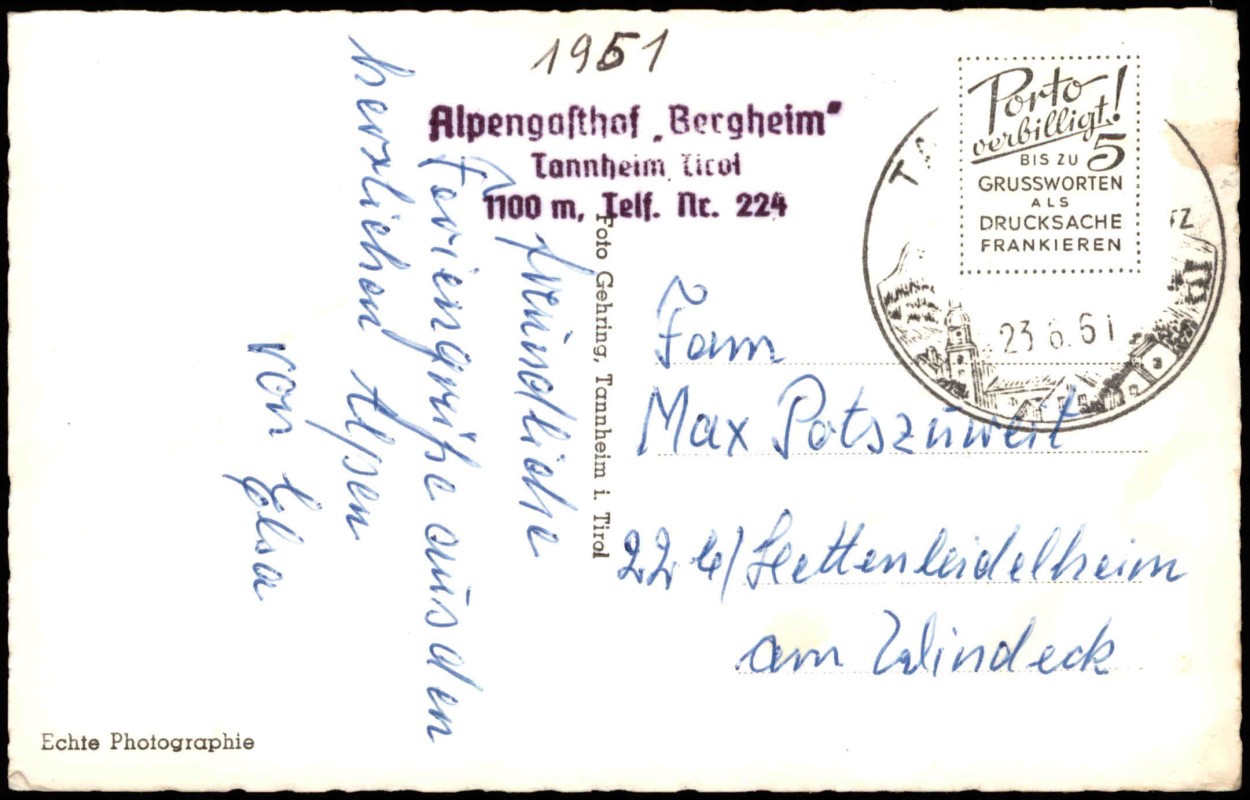 1951
Alpengasthof „Bergheim"
Tannheim, Tirol
1100 m, Telf. Nr. 224
Porto
verbilligt!
BIS ZU 5
GRUSSWORTEN
ALS
DRUCKSACHE
FRANKIEREN
TA
TZ
23.6.51
freundliche
Feriengrüße aus den
herrlichen Alpen
von Elsa
Foto Gehring, Tannheim i. Tirol
Fam
Max Potszuweit
22 b/ Hettenleidelheim
am Windeck
Echte Photographie